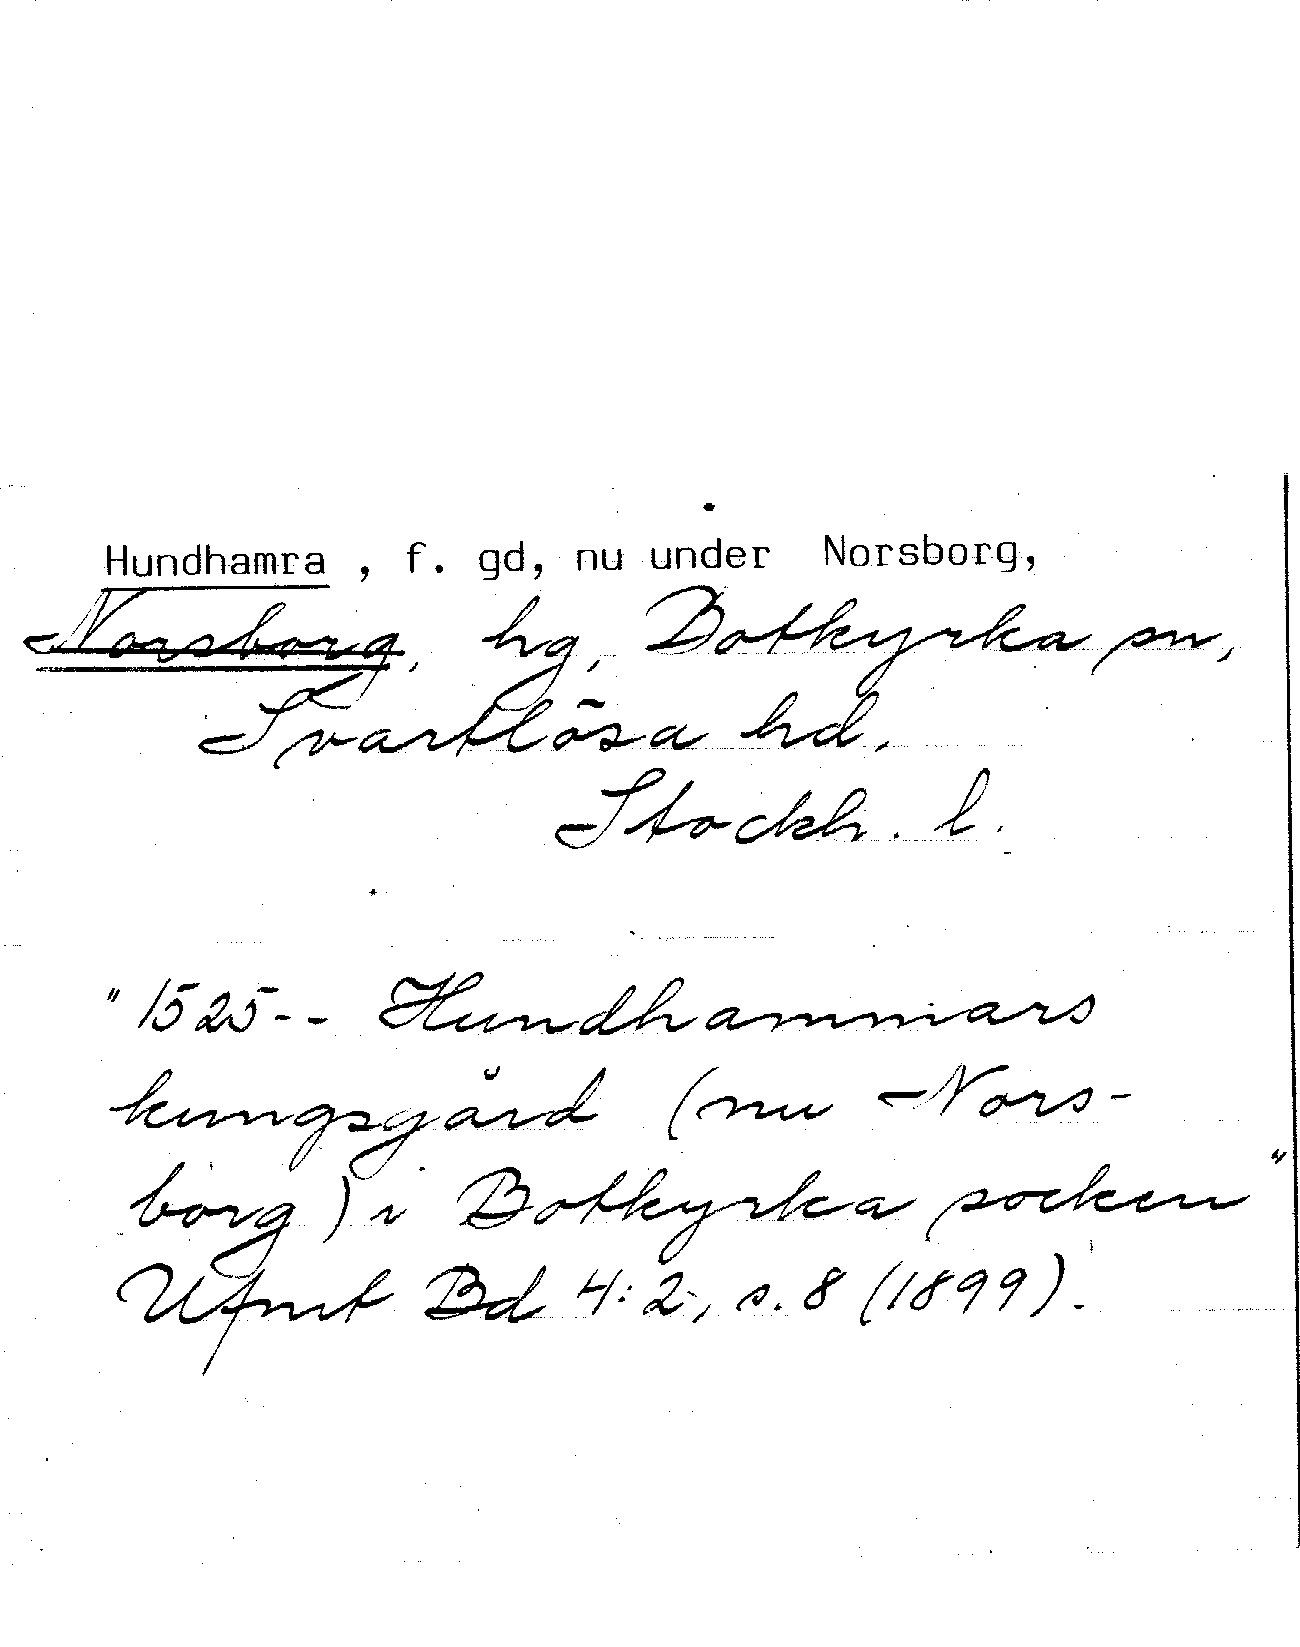 Hundhamra , f. gd, nu under Norsborg,
Norsborg, hg, Botkyrka sn,
Svartlösa hd.
Stockh. l.
"1525-- Hundhammars
kungsgård (nu Nors-
borg) i Botkyrka socken"
Ufmt Bd 4:2, s. 8 (1899).